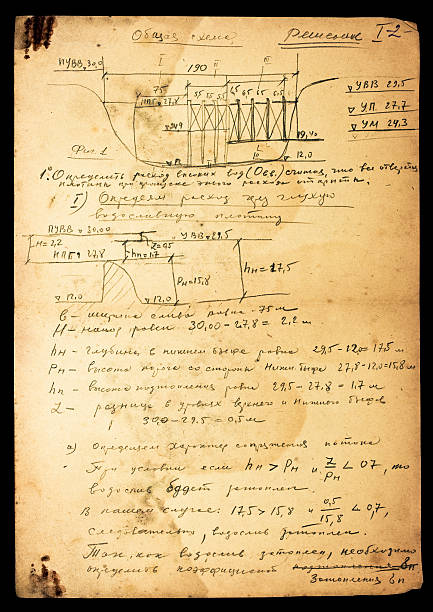 Общая схема
Решение I-2
ПУВВ 30,0
I II III
190
75
НПГ 27,8
5,5 5,5 5,5
6,5 6,5 6,5 6,5
УВВ 29,5
УП 27,7
УМ 24,3
19,40
12,0
Фиг. 1
1° Определить расход высоких вод (Qвв.) считая, что все отверстия
плотины при пропуске этого расхода открыты.
I) Определяем расход через глухую
водосливную плотину
ПУВВ 30,00
УВВ 29,5
H=2,2
Z=0,5
НПГ 27,8
hп=1,7
Pн=15,8
hн=17,5
12,0
12,0
B - ширина слива равна - 75 м
H - напор равен 30,00-27,8 = 2,2 м
hн - глубина в нижнем бьефе равна 29,5-12,0=17,5 м
Pн - высота порога со стороны нижн. бьефа 27,8-12,0=15,8 м
hп - высота подтопления равна 29,5-27,8=1,7 м
Z - разница в уровнях верхнего и нижнего бьефов
30,0-29,5=0,5 м
а) Определяем характер сопряжения потока
При условии если hн > Pн и Z/Pн < 0,7, то
водослив буддет затоплен.
В нашем случае: 17,5 > 15,8 и 0,5/15,8 < 0,7,
следовательно, водослив затоплен.
Так, как водослив затоплен, необходимо
определить коэффициент
Затопления бп